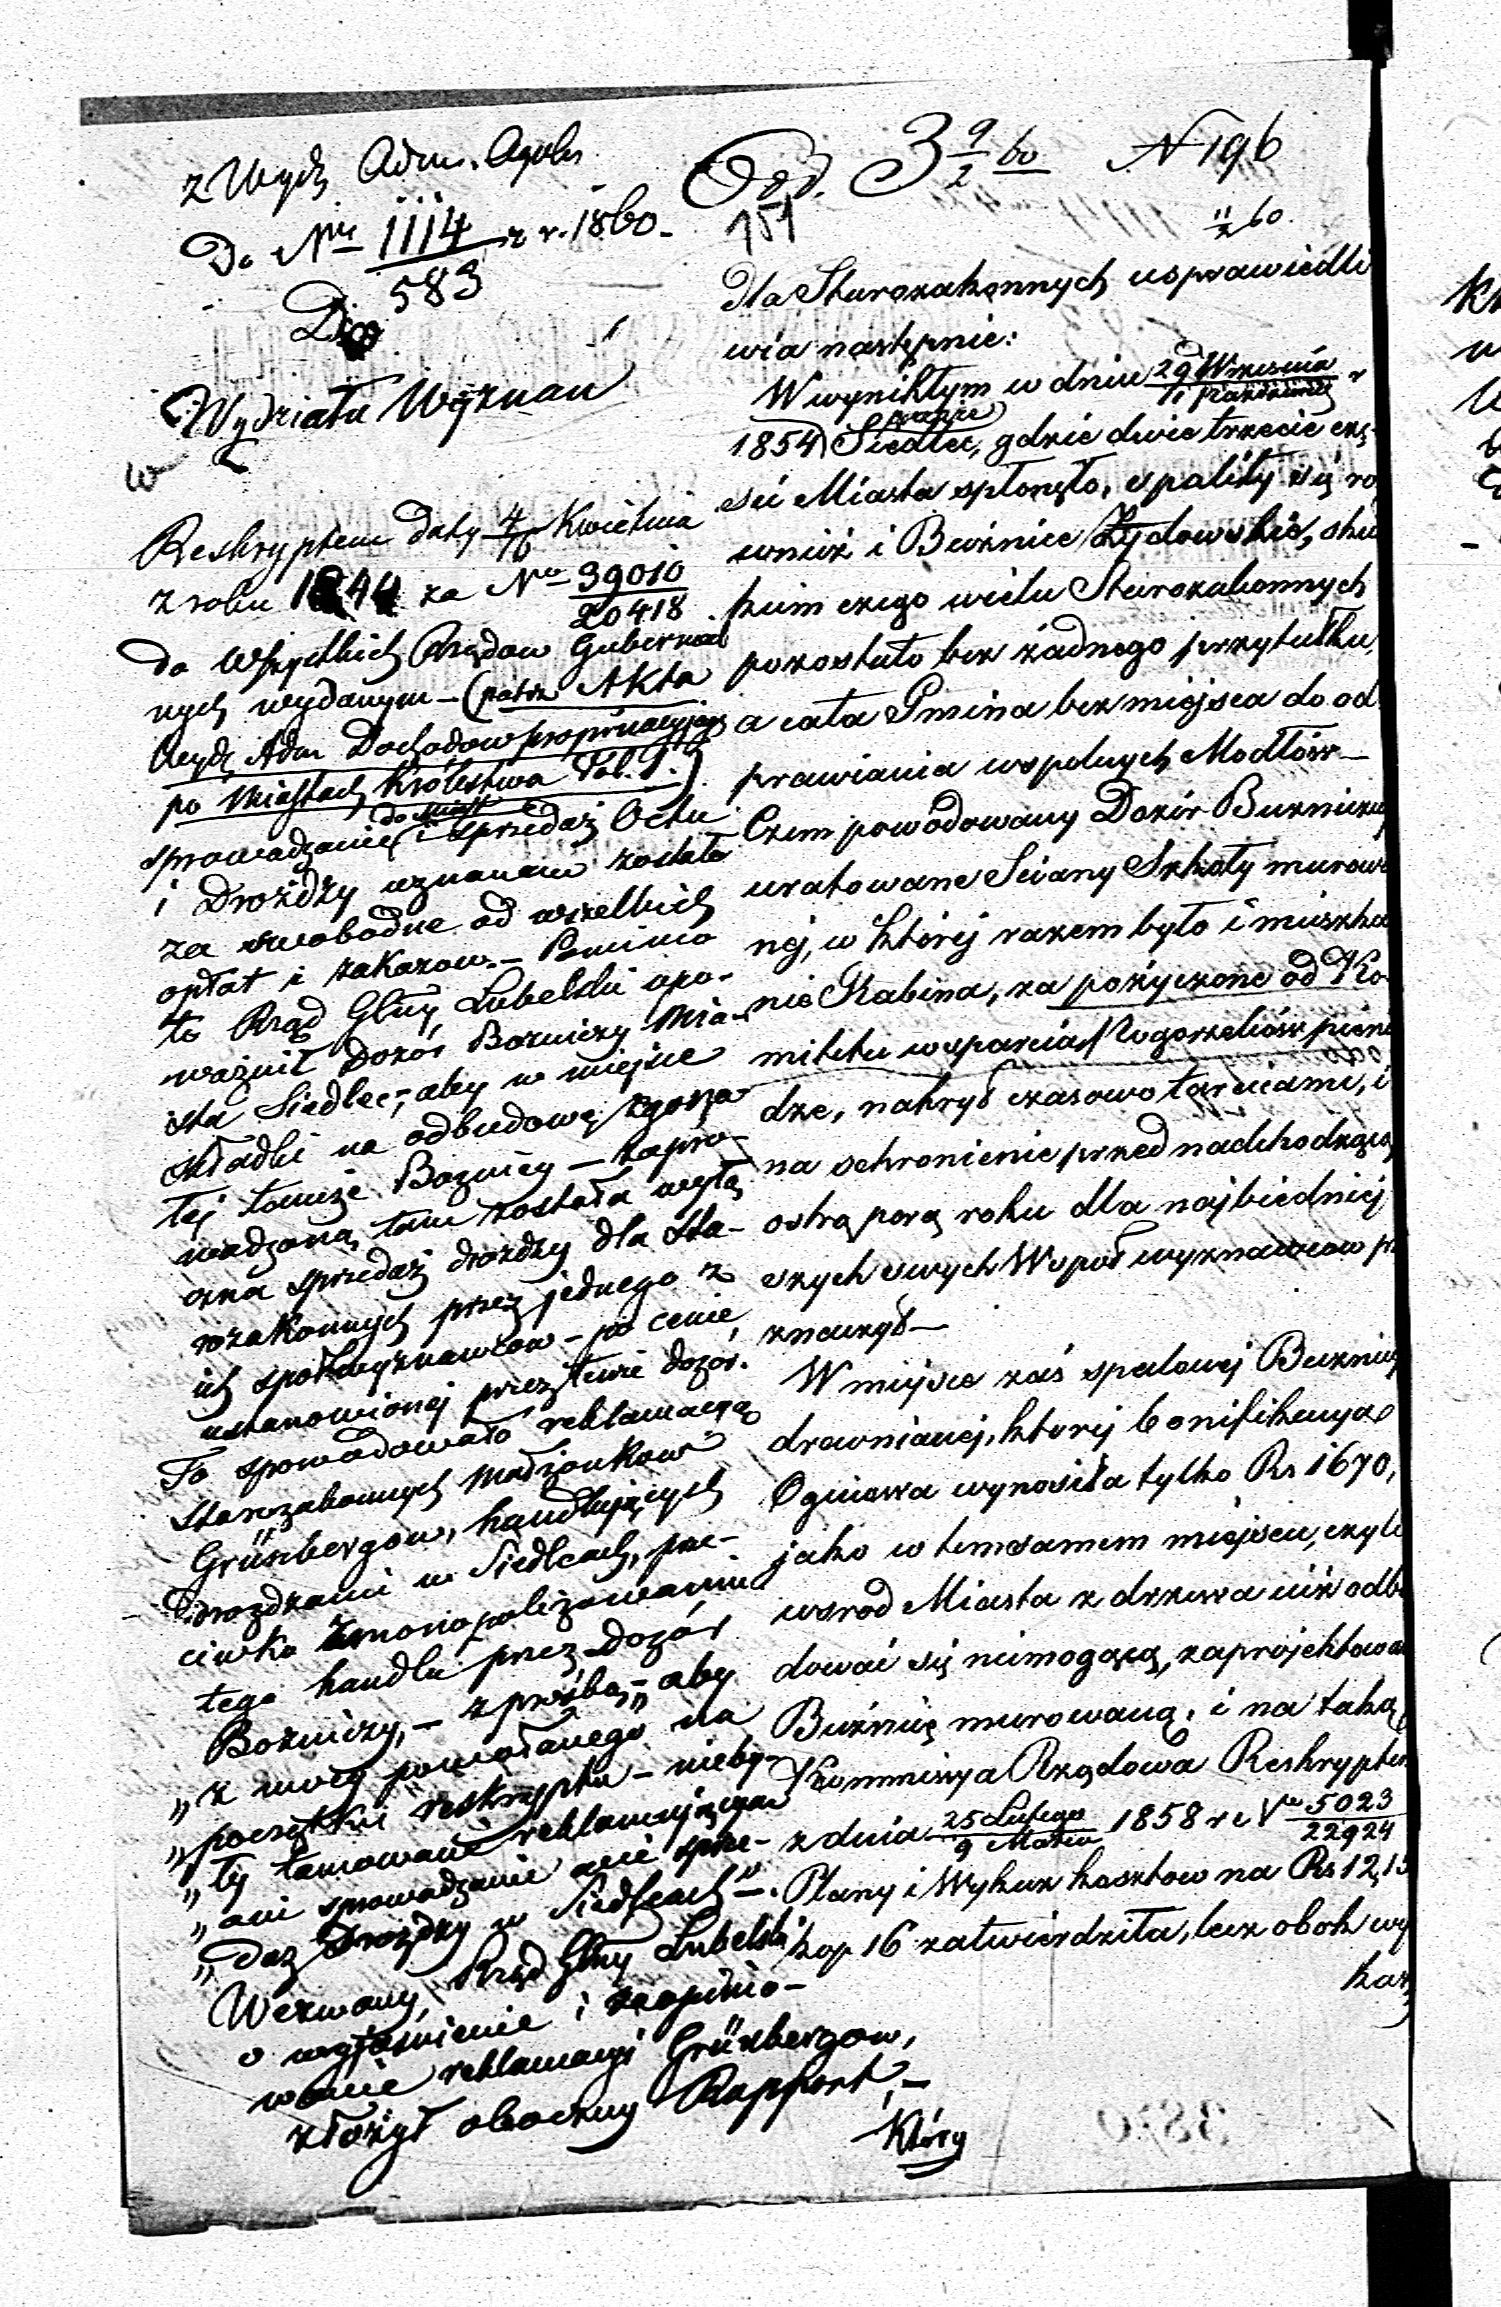 z Wydz Adm. Ogoln
Do Nru 1114 z r. 1860.
583
Wydziału Wyznan
w
Reskryptem daty 4/16 Kwietnia
z roku 1844 za Nrem 39010
20418
do wszystkich Rządow Gubernial
nych wydanym – (patrz Akta
Wydz. Adm Dochodow propinacyjnych
po Miastach Królestwa Pol.)
sprowadzanie do Miast i sprzedaż Octu
i Drożdży uznanem zostało
za swobodne od wszelkich
opłat i zakazow. – Pomimo
to Rząd Gbny Lubelski upo-
ważnił Dozór Bożniczy Mia-
sta Siedlec, aby w miejsce
składki na odbudowę zgorza
łej tamże Bożnicy – zapro-
wadzoną tam została wyłą
czna sprzedaż drożdży dla Sta-
rozakonnych przez jednego z
ich społwyznawcow – po cenie
ustanowionej przez tenże dozór.
To spowodowało reklamacyą
Starozakonnych Małżonkow
Grünbergow, handlujących
Drożdżami w Siedlcach, prze-
ciwko zmonopolizowaniu
tego handlu przez Dozór
Bożniczy, – z prośbą, – „aby
„z mocy powołanego na
„początku reskryptu – nieby-
„ły tamowane reklamującym
„ani sprowadzanie ani sprze-
„daż Drożdży w Siedlcach” –.
Wezwany, Rząd Gbny Lubelski
o wyjaśnienie i zaopinio-
wanie reklamacyi Grünbergow,
złożył oboczny Rapport, –
Który
Odd. 3 9/2 60 N 196
151
11/2 60.
dla Starozakonnych usprawiedli
wia następnie:
W wynikłym w dniu 29 Września r
11 Października
1854 pożarze Siedlec, gdzie dwie trzecie czę-
ści Miasta spłonęło, spaliły się ró
wnież i Bużnice Żydowskie, sku
tkiem czego wielu Starozakonnych
pozostało bez żadnego przytułku,
a cała Gmina bez miejsca do od
prawiania wspolnych Modłów –
Czem powodowany Dozór Bużniczy
uratowane Sciany Szkoły murowa
nej, w której razem było i mieszka
nie Rabina, za pożyczone od Ko-
mitetu wsparcia Pogorzelców pienią
dze, nakrył czasowo tarcicami, i
na schronienie przed nadchodzącą
ostrą porą roku dla najbiedniej
szych swych Współwyznawcow prze
znaczył –
W miejsce zaś spalonej Bużnicy
drewnianej, ktorej bonifikacya
Ogniowa wynosiła tylko Rs 1670,
jako w temsamem miejscu, czyli
wsrod Miasta z drzewa niż odbu
dować się niemogącą, zaprojektował
Bużnicę murowaną, i na taką
Kommisya Rządowa Reskryptem
z dnia 25 Lutego 1858 r Nr 5023
9 Marca 22924
Plany i Wykaz kosztow na Rs 12,13
kop 16 zatwierdziła, lecz obok wy
kazu